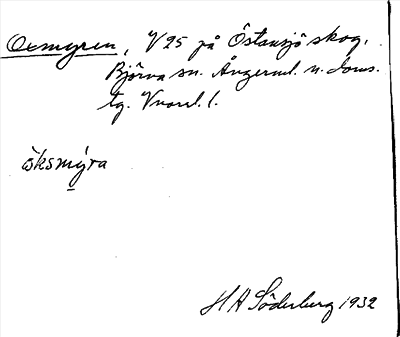 Oxmyren, V25 på Östansjö skog,
Björna sn. Ångerml. n. doms.
tg. Vnorrl. l.
öksmýra
H A Söderberg 1932